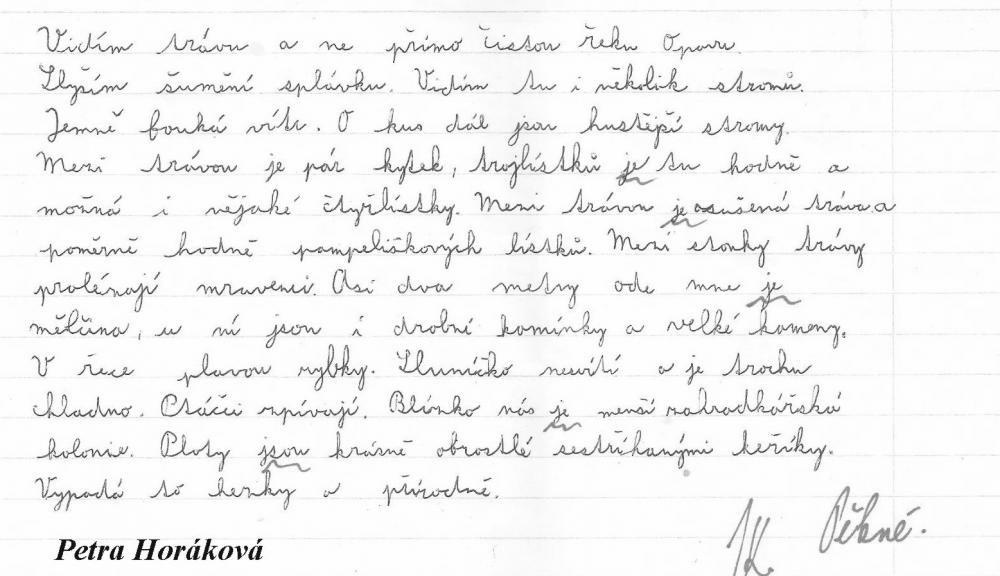 Vidím trávu a ne přímo čistou řeku Opavu.
Slyším šumění splávku. Vidím tu i několik stromů.
Jemně fouká vítr. O kus dál jsou hustější stromy.
Mezi trávou je pár kytek, trojlístků je tu hodně a
možná i nějaké čtyřlístky. Mezi trávou je osušená tráva a
poměrně hodně pampeliškových lístků. Mezi stonky trávy
prolézají mravenci. Asi dva metry ode mne je
mělčina, u ní jsou i drobné kamínky a velké kameny.
V řece plavou rybky. Sluníčko nesvítí a je trochu
chladno. Ptáčci zpívají. Blízko nás je menší zahradkářská
kolonie. Ploty jsou krásně obrostlé sestříhanými keříky.
Vypadá to hezky a přírodně.
Pěkné.
Petra Horáková